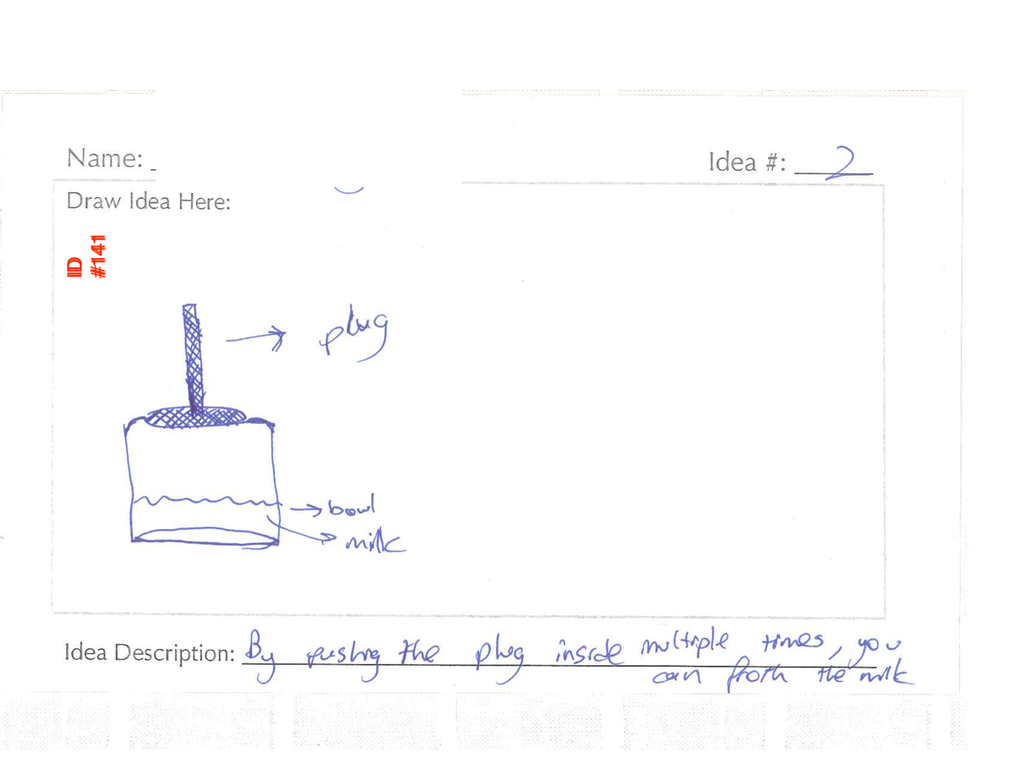 Name: _
Idea #: 2
Draw Idea Here:
ID
#141
plug
bowl
milk
Idea Description: By pushing the plug inside multiple times, you
can froth the milk